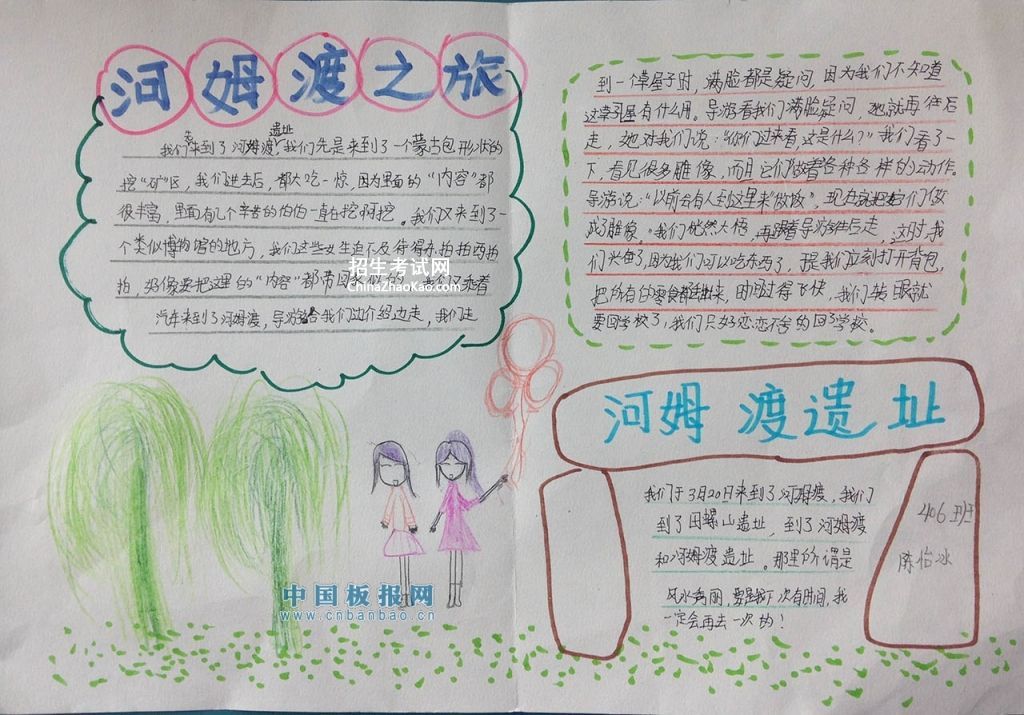 河姆渡之旅
我们先来到了河姆渡遗址,我们先是来到了一个蒙古包形状的
挖“矿”区,我们进去后,都大吃一惊,因为里面的“内容”都
很丰富,里面有几个辛苦的伯伯一直在挖啊挖。我们又来到了一
个类似博物馆的地方,我们这些女生迫不及待得东拍拍西拍
拍,好像要把这里的“内容”都带回家似的。我们又乘着
汽车来到了河姆渡,导游给我们边介绍边走,我们走
到一个草屋子时,满脸都是疑问,因为我们不知道
这草屋有什么用。导游看我们满脸疑问,她就再往后
走,她对我们说:“你们过来看,这是什么?”我们看了一
下,看见很多雕像,而且它们做着各种各样的动作。
导游说:“以前会有人到这里来做饭”,现在把它们做
成了雕像。我们恍然大悟,再跟着导游往后走,这时,我
们兴奋了,因为我们可以吃东西了,于是我们立刻打开背包,
把所有的零食都拿出来,时间过得飞快,我们转眼就
要回学校了,我们只好恋恋不舍的回了学校。
河姆渡遗址
我们于3月20日来到了河姆渡,我们
到了田螺山遗址,到了河姆渡
和河姆渡遗址。那里所谓是
风水秀丽,要是下次有时间,我
一定会再去一次的!
406班
陈怡冰
招生考试网
ChinaZhaoKao.com
中国板报网
www.cnbanbao.cn